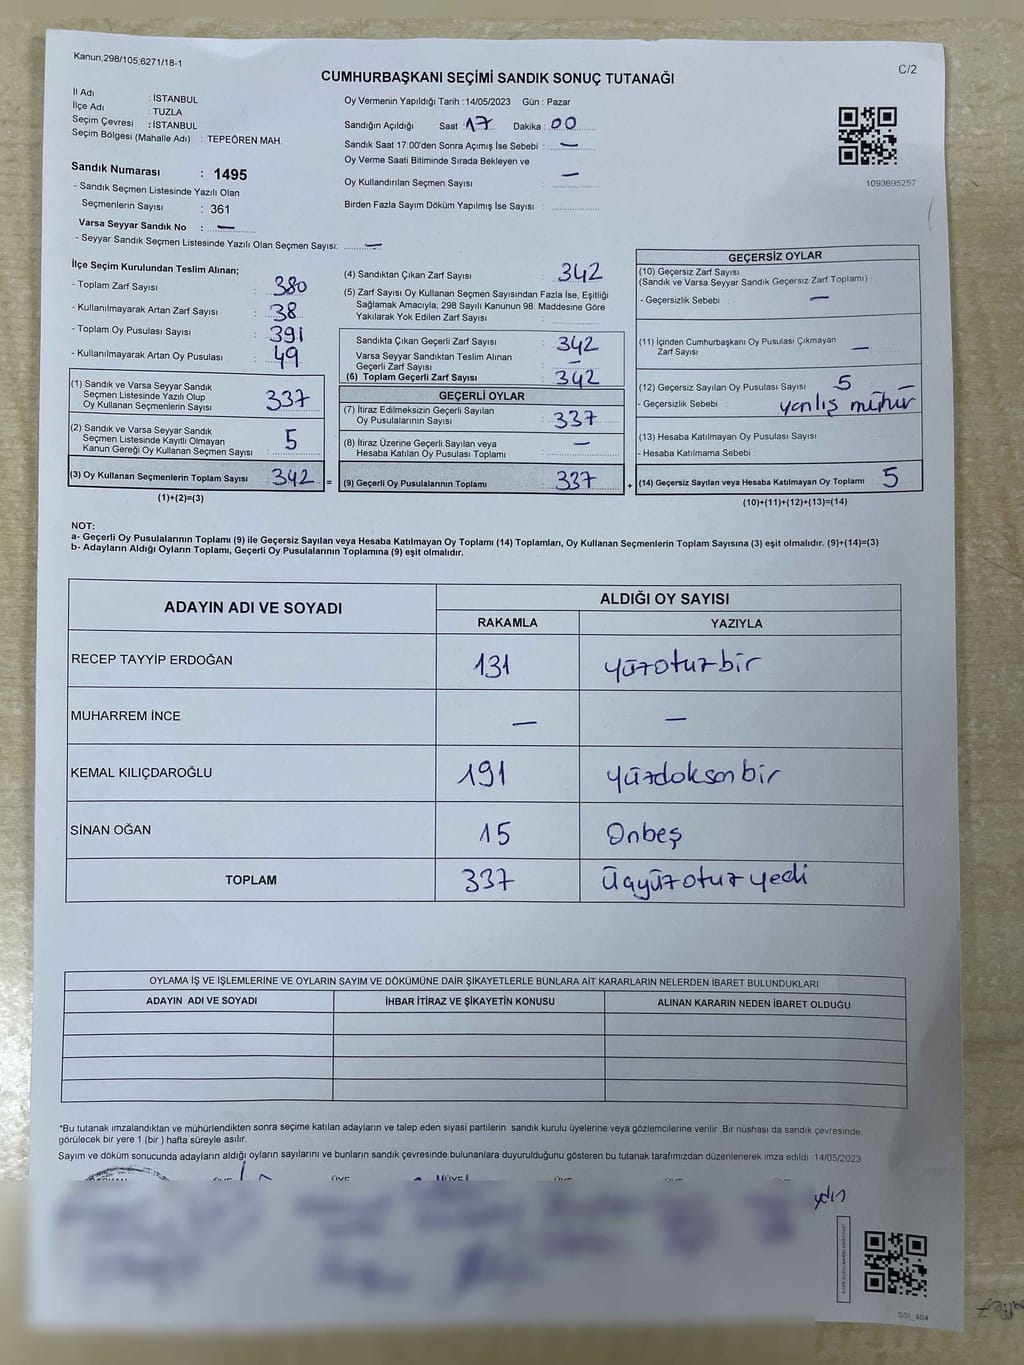 Kanun;298/105;6271/18-1
C/2
CUMHURBAŞKANI SEÇİMİ SANDIK SONUÇ TUTANAĞI
İl Adı : İSTANBUL
İlçe Adı : TUZLA
Seçim Çevresi : İSTANBUL
Seçim Bölgesi (Mahalle Adı) : TEPEÖREN MAH.
Sandık Numarası : 1495
- Sandık Seçmen Listesinde Yazılı Olan
Seçmenlerin Sayısı : 361
Varsa Seyyar Sandık No : —
- Seyyar Sandık Seçmen Listesinde Yazılı Olan Seçmen Sayısı: —
Oy Vermenin Yapıldığı Tarih : 14/05/2023 Gün : Pazar
Sandığın Açıldığı Saat : 17 Dakika : 00
Sandık Saat 17:00'den Sonra Açımış İse Sebebi : —
Oy Verme Saati Bitiminde Sırada Bekleyen ve
Oy Kullandırılan Seçmen Sayısı : —
Birden Fazla Sayım Döküm Yapılmış İse Sayısı :
1093695257
İlçe Seçim Kurulundan Teslim Alınan;
- Toplam Zarf Sayısı : 380
- Kullanılmayarak Artan Zarf Sayısı : 38
- Toplam Oy Pusulası Sayısı : 391
- Kullanılmayarak Artan Oy Pusulası : 49
(1) Sandık ve Varsa Seyyar Sandık
Seçmen Listesinde Yazılı Olup
Oy Kullanan Seçmenlerin Sayısı : 337
(2) Sandık ve Varsa Seyyar Sandık
Seçmen Listesinde Kayıtlı Olmayan
Kanun Gereği Oy Kullanan Seçmen Sayısı : 5
(3) Oy Kullanan Seçmenlerin Toplam Sayısı : 342 =
(1)+(2)=(3)
(4) Sandıktan Çıkan Zarf Sayısı : 342
(5) Zarf Sayısı Oy Kullanan Seçmen Sayısından Fazla İse, Eşitliği
Sağlamak Amacıyla; 298 Sayılı Kanunun 98. Maddesine Göre
Yakılarak Yok Edilen Zarf Sayısı :
Sandıkta Çıkan Geçerli Zarf Sayısı : 342
Varsa Seyyar Sandıktan Teslim Alınan
Geçerli Zarf Sayısı : —
(6) Toplam Geçerli Zarf Sayısı : 342
GEÇERLİ OYLAR
(7) İtiraz Edilmeksizin Geçerli Sayılan
Oy Pusulalarının Sayısı : 337
(8) İtiraz Üzerine Geçerli Sayılan veya
Hesaba Katılan Oy Pusulası Toplamı : —
(9) Geçerli Oy Pusulalarının Toplamı : 337 +
GEÇERSİZ OYLAR
(10) Geçersiz Zarf Sayısı
(Sandık ve Varsa Seyyar Sandık Geçersiz Zarf Toplamı) :
- Geçersizlik Sebebi : —
(11) İçinden Cumhurbaşkanı Oy Pusulası Çıkmayan
Zarf Sayısı : —
(12) Geçersiz Sayılan Oy Pusulası Sayısı : 5 —
- Geçersizlik Sebebi : yanlış mühür
(13) Hesaba Katılmayan Oy Pusulası Sayısı :
- Hesaba Katılmama Sebebi :
(14) Geçersiz Sayılan veya Hesaba Katılmayan Oy Toplamı : 5
(10)+(11)+(12)+(13)=(14)
NOT:
a- Geçerli Oy Pusulalarının Toplamı (9) ile Geçersiz Sayılan veya Hesaba Katılmayan Oy Toplamı (14) Toplamları, Oy Kullanan Seçmenlerin Toplam Sayısına (3) eşit olmalıdır. (9)+(14)=(3)
b- Adayların Aldığı Oyların Toplamı, Geçerli Oy Pusulalarının Toplamına (9) eşit olmalıdır.
ADAYIN ADI VE SOYADI
ALDIĞI OY SAYISI
RAKAMLA YAZIYLA
RECEP TAYYİP ERDOĞAN 131 yüzotuzbir
MUHARREM İNCE — —
KEMAL KILIÇDAROĞLU 191 yüzdoksanbir
SİNAN OĞAN 15 Onbeş
TOPLAM 337 Üçyüzotuzyedi
OYLAMA İŞ VE İŞLEMLERİNE VE OYLARIN SAYIM VE DÖKÜMÜNE DAİR ŞİKAYETLERLE BUNLARA AİT KARARLARIN NELERDEN İBARET BULUNDUKLARI
ADAYIN ADI VE SOYADI İHBAR İTİRAZ VE ŞİKAYETİN KONUSU ALINAN KARARIN NEDEN İBARET OLDUĞU
*Bu tutanak imzalandıktan ve mühürlendikten sonra seçime katılan adayların ve talep eden siyasi partilerin sandık kurulu üyelerine veya gözlemcilerine verilir. Bir nüshası da sandık çevresinde
görülecek bir yere 1 (bir ) hafta süreyle asılır.
Sayım ve döküm sonucunda adayların aldığı oyların sayılarını ve bunların sandık çevresinde bulunanlara duyurulduğunu gösteren bu tutanak tarafımızdan düzenlenerek imza edildi 14/05/2023
ÜYE ÜYE ÜYE ÜYE